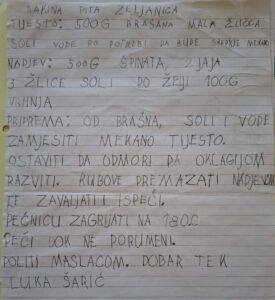 BAKINA PITA ZELJANICA
TIJESTO: 500G BRAŠNA MALA ŽLIČICA
SOLI VODE PO POTREBI DA BUDE SREDNJE MEKANO
NADJEV: 500G ŠPINATA, 2 JAJA
3 ŽLICE SOLI PO ŽELJI 100G
VRHNJA
PRIPREMA: OD BRAŠNA, SOLI I VODE
ZAMJESITI MEKANO TIJESTO.
OSTAVITI DA ODMORI DA OKLAGIJOM
RAZVITI. RUBOVE PREMAZATI NADJEVOM
TE ZAVALJATI I ISPEĆI.
PEĆNICU ZAGRIJATI NA 180C
PEĆI DOK NE PORUMENI.
POLITI MASLACOM. DOBAR TEK
LUKA ŠARIĆ